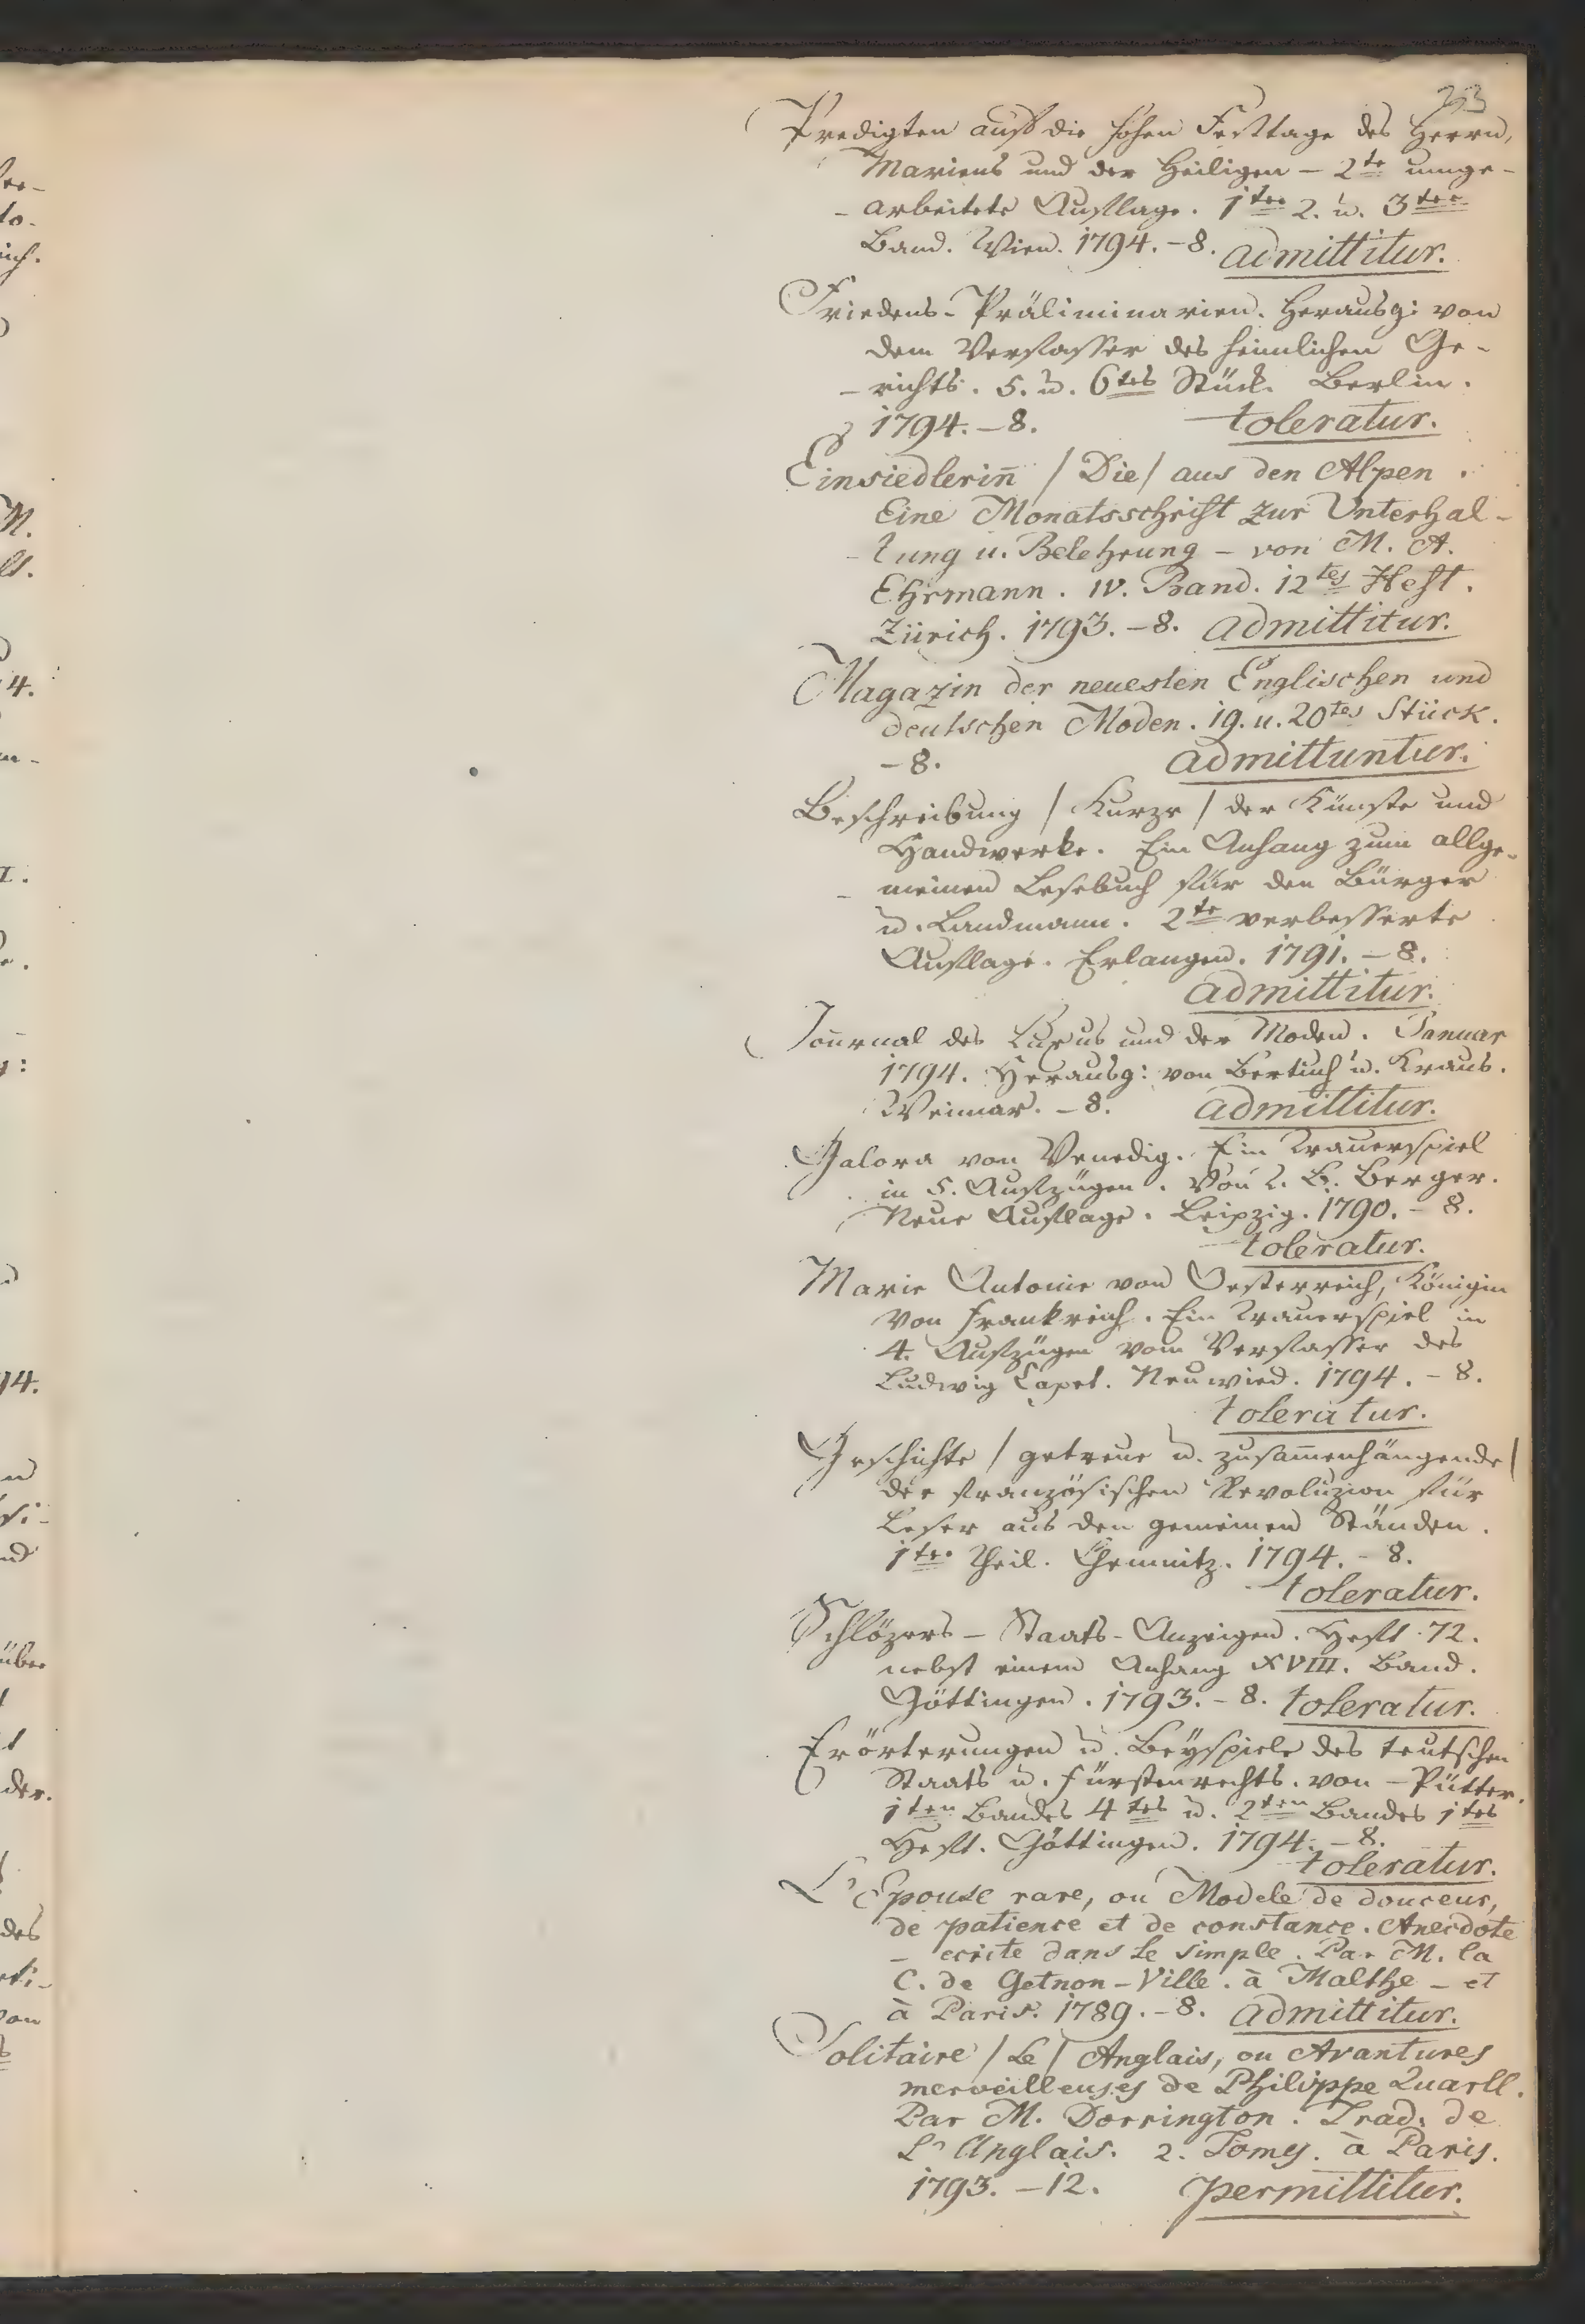 Predigten auf die hohen Festtage des Herrn,
Mariens und der Heiligen – 2te umge-
- arbeitete Auflage. 1ter 2. u. 3ter
Band. Wien. 1794. – 8. admittitur.
Friedens-Präliminarien. Herausg: von
dem Verfasser des heimlichen Ge-
- richts. 5. u. 6tes Stück. Berlin.
1794. – 8. toleratur.
Einsiedlerin̄ / Die / aus den Alpen.
Eine Monatsschrift zur Unterhal-
- tung u. Belehrung – von M. A.
Ehrmann. IV. Band. 12tes Heft.
Zürich. 1793. – 8. admittitur.
Magazin der neuesten Englischen und
deutschen Moden. 19. u. 20tes Stück.
– 8. admittuntur.
Beschreibung / Kurze / der Künste und
Handwerke. Ein Anhang zum allge-
- meinen Lesebuch für den Bürger
u. Landmann. 2te verbesserte
Auflage. Erlangen. 1791. – 8.
admittitur.
Journal des Luxus und der Moden. Januar
1794. Herausg: von Bertuch u. Kraus.
Weimar. – 8. admittitur.
Galora von Venedig. Ein Trauerspiel
in 5. Aufzügen. Von L. Berger.
Neue Auflage. Leipzig. 1790. – 8.
toleratur.
Marie Antonie von Oesterreich, Königin
von Frankreich. Ein Trauerspiel in
4. Aufzügen vom Verfasser des
Ludwig Capet. Neuwied. 1794. – 8.
toleratur.
Geschichte / getreue u. zusam̄enhängende /
der französischen Revoluzion für
Leser aus den gemeinen Ständen.
1ter Theil. Chemnitz. 1794. – 8.
toleratur.
Schlözers – Staats-Anzeigen. Heft. 72.
nebst einem Anhang XVIII. Band.
Göttingen. 1793. – 8. toleratur.
Erörterungen u. Beyspiele des teutschen
Staats u. Fürstenrechts. von – Pütter.
1ten Bandes 4tes u. 2ten Bandes 1tes
Heft. Göttingen. 1794. – 8.
toleratur.
L'Epouse rare, ou Modele de douceur,
de patience et de constance. Anecdote
– ecrite dans le simple. Par M. la
C. de Getnon-Ville. à Malthe – et
à Paris. 1789. – 8. admittitur.
Solitaire / Le / Anglais, ou Avantures
merveilleuses de Philippe Quarll.
Par M. Dorrington. Trad. de
L'Anglais. 2. Tomes. à Paris.
1793. – 12. permittitur.